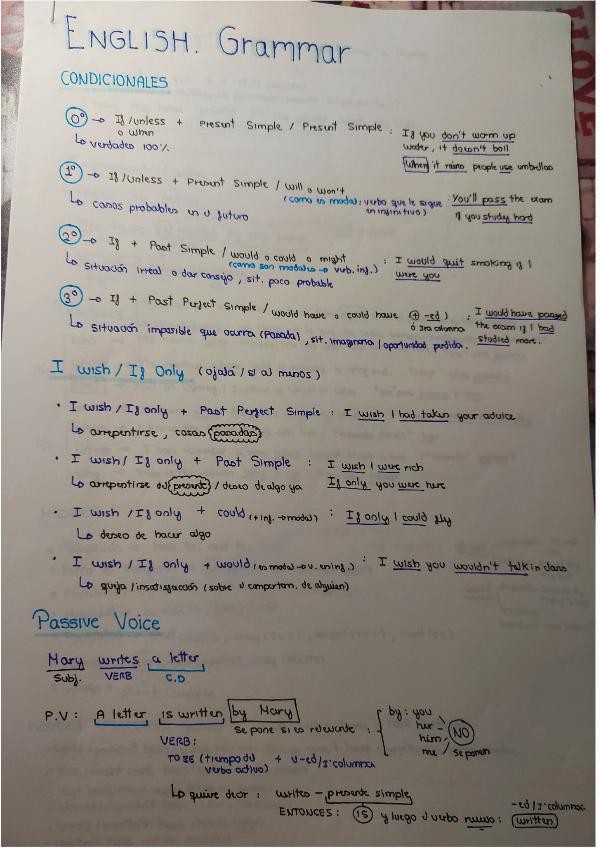 ENGLISH. Grammar
CONDICIONALES
0º → If/unless + Present Simple / Present Simple : If you don't worm up
o when
↳ verdades 100% water, it doesn't boil
When it rains, people use umbrellas
1º → If/Unless + Present Simple / will o won't : You'll pass the exam
(como es modal, verbo que le sigue en infinitivo)
↳ casos probables en el futuro if you study hard
2º → If + Past Simple / would o could o might : I would quit smoking if I
(como son modales → verb. inf.)
↳ Situación irreal o dar consejo, sit. poco probable were you
3º → If + Past Perfect Simple / would have o could have (+ -ed) : I would have passed
ó 3ra columna the exam if I had
↳ Situación imposible que ocurra (Pasada), sit. imaginaria / oportunidad perdida. studied more.
I wish / If Only (ojalá / si al menos)
• I wish / If only + Past Perfect Simple : I wish I had taken your advice
↳ arrepentirse, cosas pasadas
• I wish / If only + Past Simple : I wish I were rich
↳ arrepentirse del presente / deseo de algo ya If only you were here
• I wish / If only + could (+ inf. → modal) : If only I could fly
↳ deseo de hacer algo
• I wish / If only + would (es modal → v. en inf.) : I wish you wouldn't talk in class
↳ queja / insatisfacción (sobre el comportam. de alguien)
Passive Voice
Mary writes a letter
Subj. VERB C.D
P.V : A letter is written by Mary
Se pone si es relevante : by : you
her
him
me
NO
se ponen
VERB :
TO BE (tiempo del verbo activo) + v-ed/3ª columna
↳ quiere decir : writes – presente simple
ENTONCES : IS y luego el verbo nuevo : written
-ed/3ª columna